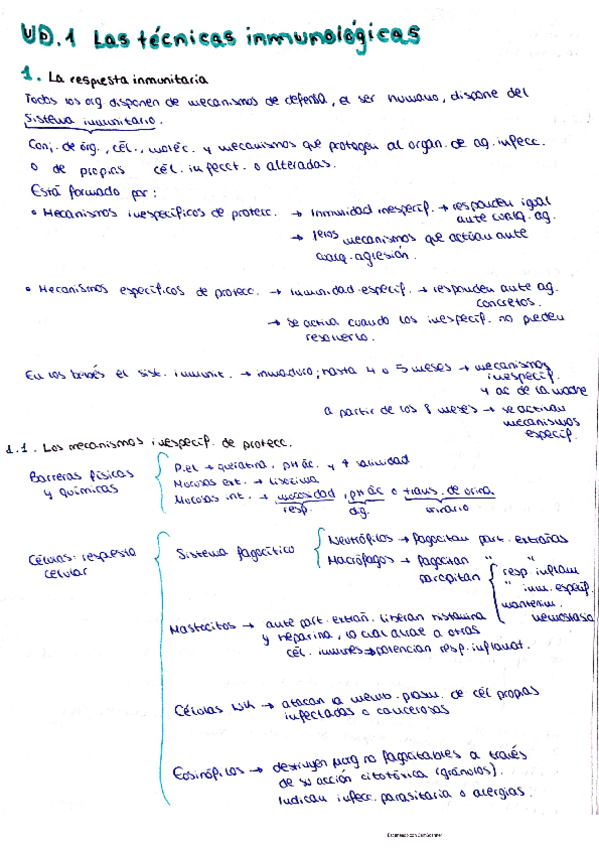 UD.1 Las técnicas inmunológicas
1. La respuesta inmunitaria
Todos los org disponen de mecanismos de defensa, el ser humano, dispone del
Sistema inmunitario.
Conj. de órg., cél., moléc. y mecanismos que protegen al organ. de ag. infecc.
o de propias cél. infecct. o alteradas.
Está formado por:
• Mecanismos inespecíficos de protecc. → Inmunidad inespecíf. → responden igual
ante cualq. ag.
→ 1eros mecanismos que actúan ante
cualq. agresión.
• Mecanismos específicos de protecc. → inmunidad específ. → responden ante ag.
concretos.
→ se activa cuando los inespecíf. no pueden
resolverlo.
En los bebés el sist. inmunit. → inmaduro; hasta 4 o 5 meses → mecanismos
inespecíf.
y ac de la madre
a partir de los 8 meses → se activan
mecanismos
específ.
1.1. Los mecanismos inespecíf. de protecc.
Barreras físicas
y químicas
Piel → queratina, pH ác. y ↑ salinidad
Mucosas ext. → lisozima
Mucosas int. → mucosidad, pH ác o trans. de orina
resp. dig. urinario
Células: respuesta
celular
Sistema fagocítico
Neutrófilos → fagocitan part. extrañas
Macrófagos → fagocitan " "
participan
resp inflam
" inm. específ.
mantenim.
hemostasia
Mastocitos → ante part. extrañ. liberan histamina
y heparina, lo cual atrae a otras
cél. inmunes → potencian resp. inflamat.
Células NK → atacan la memb. plasm. de cél propias
infectadas o cancerosas
Eosinófilos → destruyen parg no fagocitables a través
de su acción citotóxica (gránulos).
Indican infecc. parasitaria o alergias.
Escaneado con CamScanner